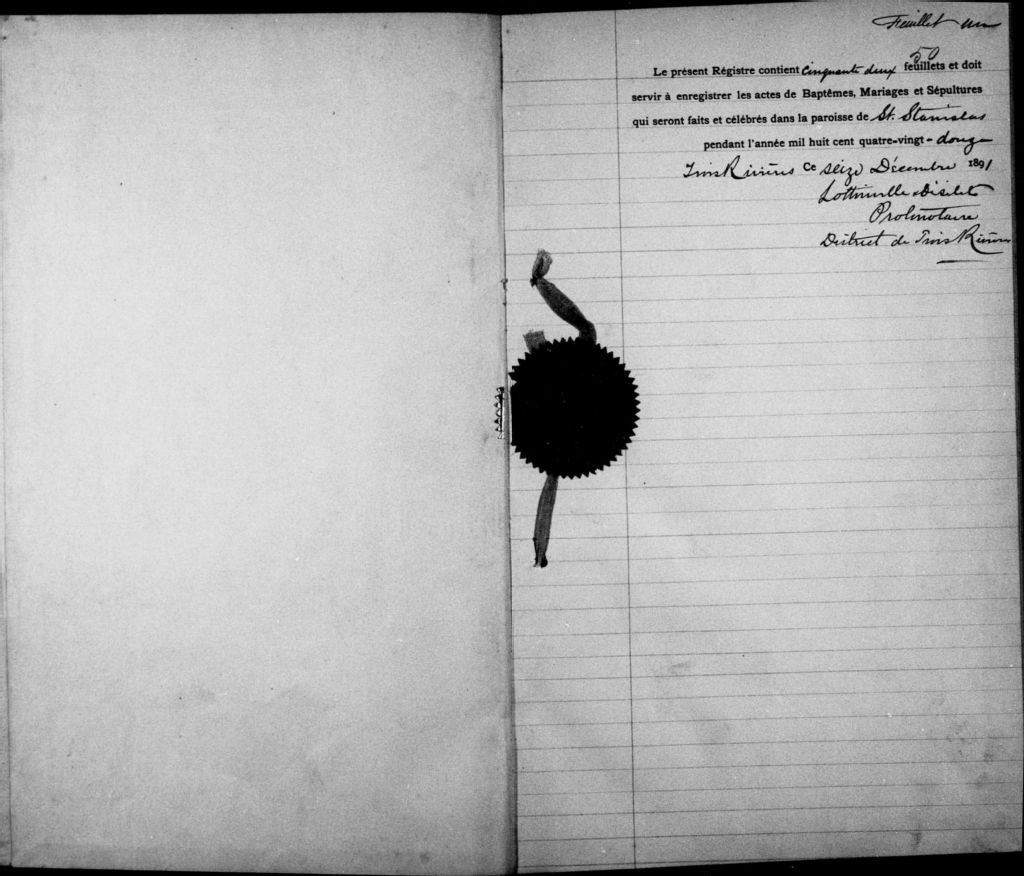 Feuillet un
50
Le présent Régistre contient cinquante deux feuillets et doit
servir à enregistrer les actes de Baptêmes, Mariages et Sépultures
qui seront faits et célébrés dans la paroisse de St. Stanislas
pendant l'année mil huit cent quatre-vingt-douze
Trois Rivières Ce seize Décembre 1891
Lottinville & Désilets
Protonotaire
District de Trois Rivières